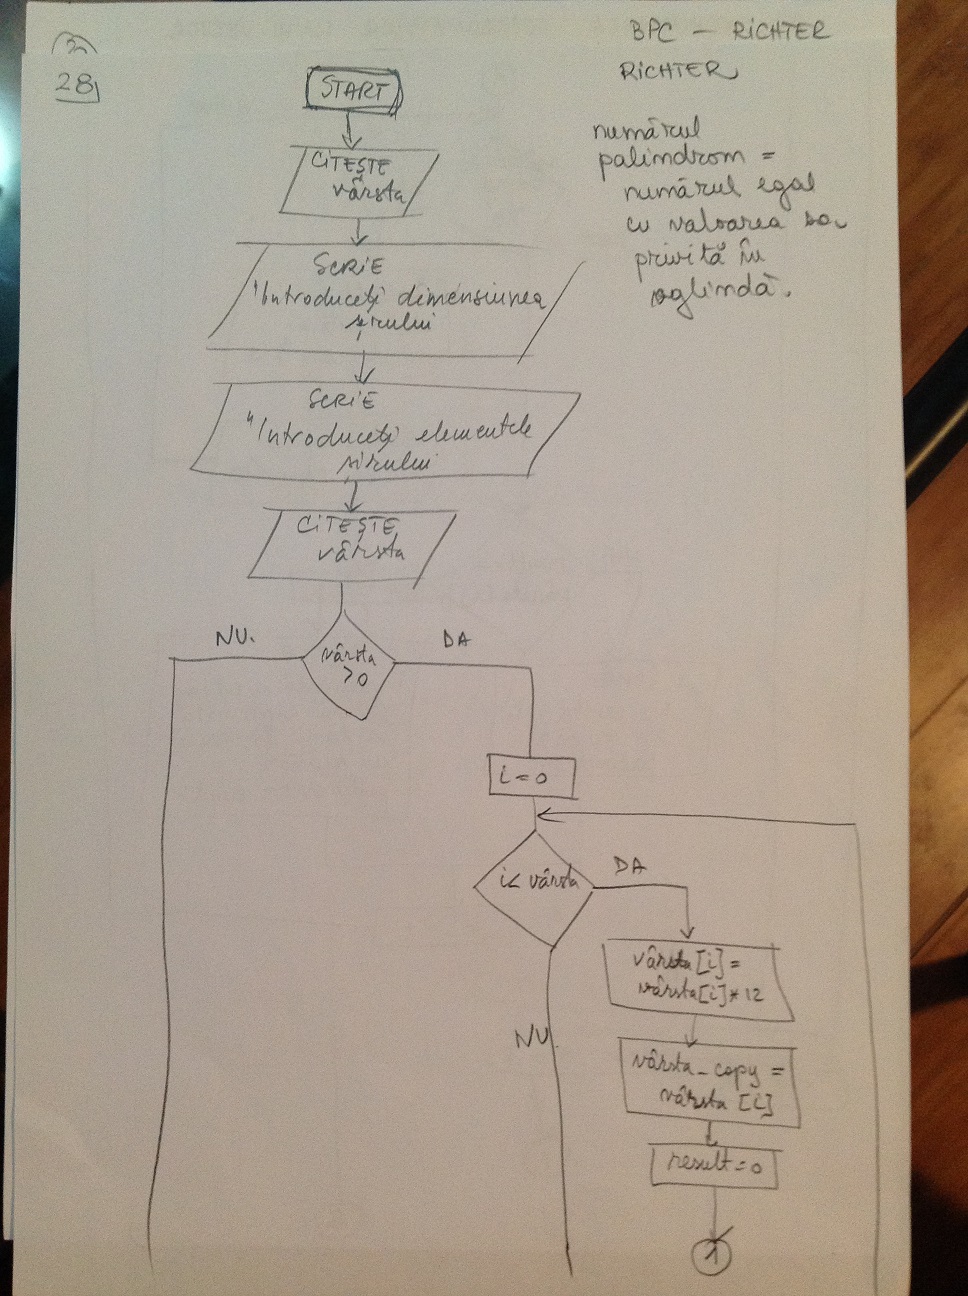 2
28
BPC - RICHTER
RICHTER
numărul
palindrom =
numărul egal
cu valoarea sa
privită în
oglindă.
START
CITEȘTE
vârsta
SCRIE
"Introduceți dimensiunea
șirului
SCRIE
"Introduceți elementele
șirului
CITEȘTE
vârsta
NU.
vârsta
>0
DA
i=0
i< vârsta
DA
vârsta[i]=
vârsta[i]*12
NU.
vârsta_copy =
vârsta [i]
result=0
1